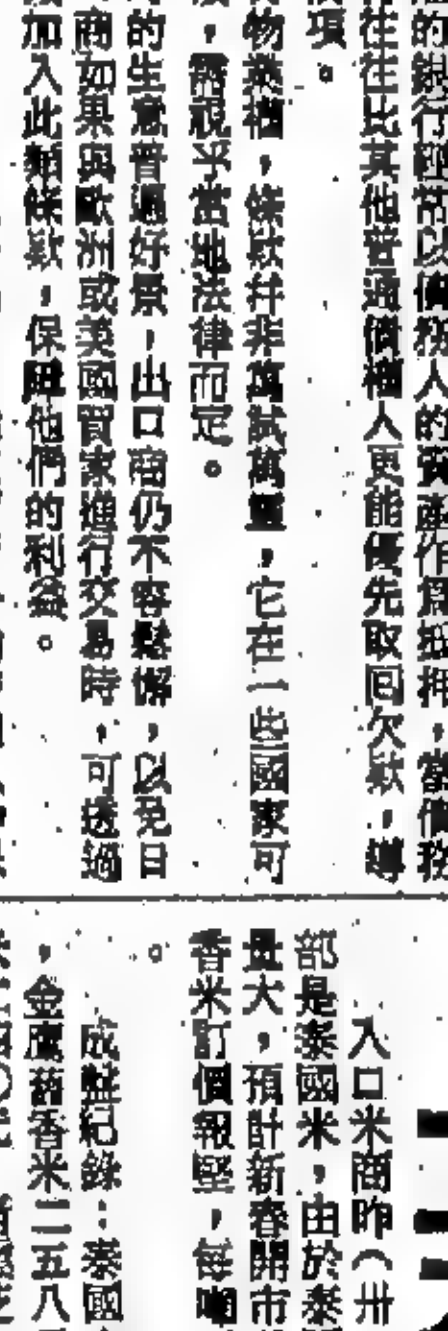 的銀行經常以債務人的資產作爲抵押,當債務
往往比其他普通債權人更能優先取回欠欵,導
項。
物業權,條欵幷非萬試萬靈,它在一些國家可
,需視乎當地法律而定。
的生意普遍好景,出口商仍不容鬆懈,以免日
商如果與歐洲或美國買家進行交易時,可透過
加入此類條欵,保障他們的利益。
入口米商昨(卅
部是泰國米,由於泰
量大,預計新春開市
香米訂價報堅,每噸
。
成盤紀錄:泰國
,金鷹舊香米二五八